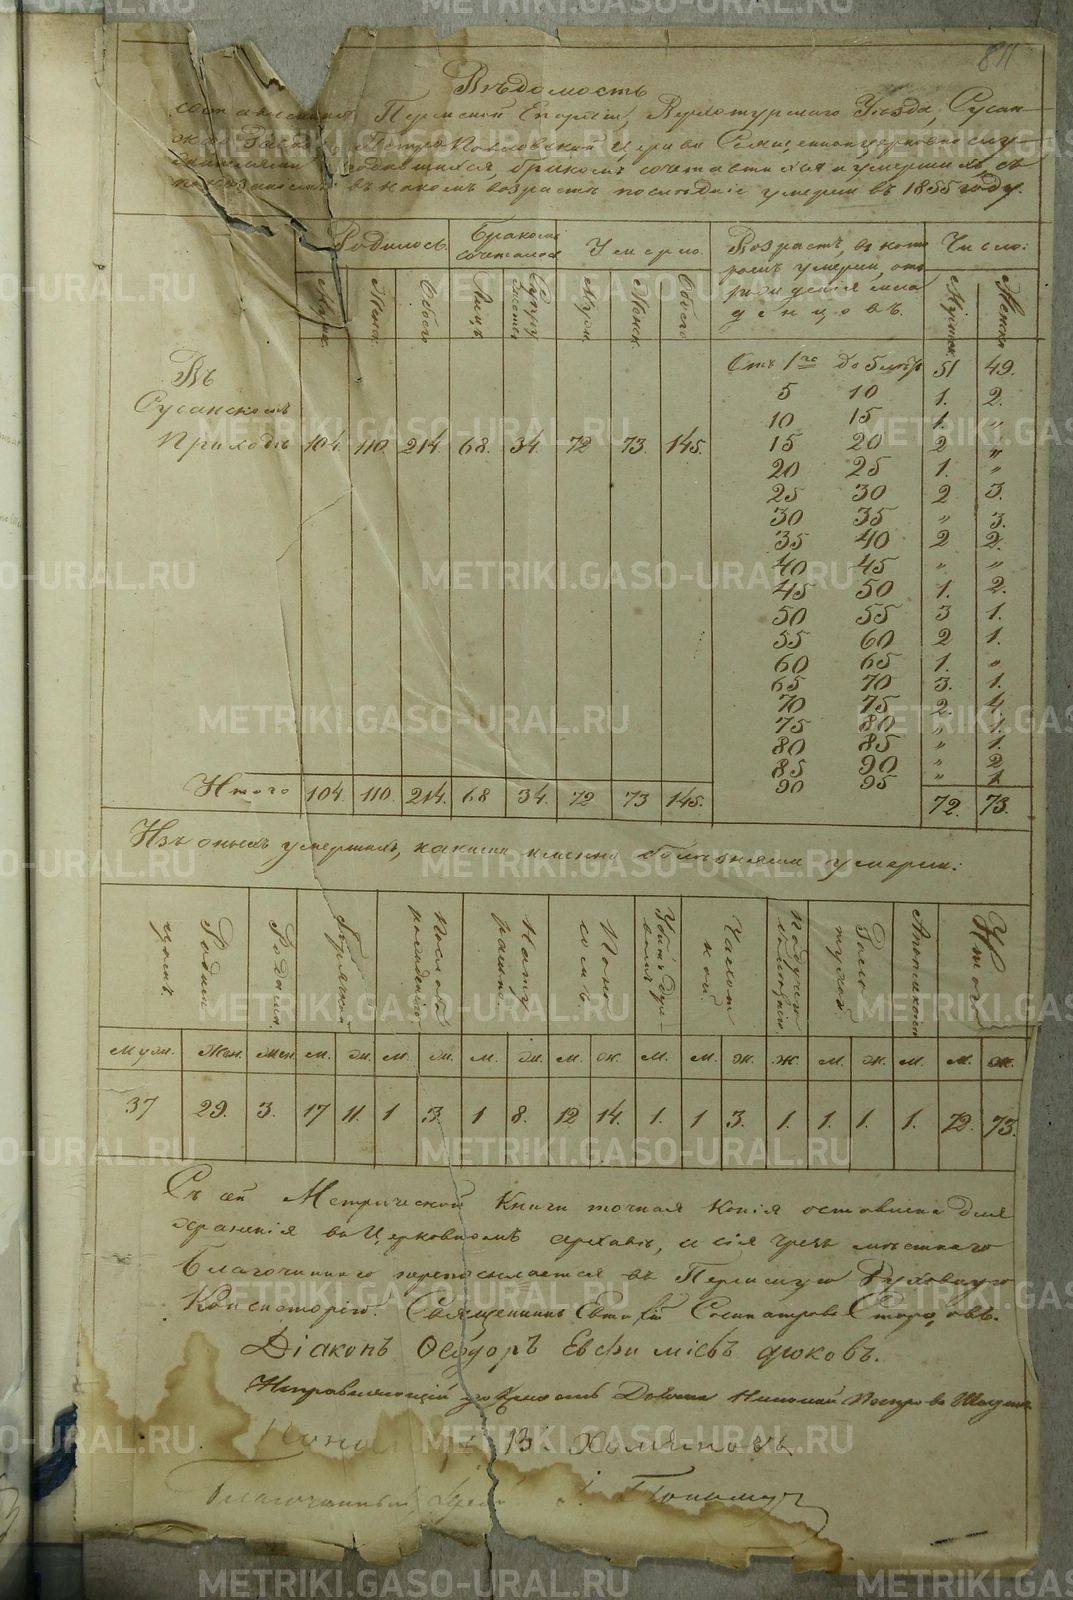 811
Вѣдомость
составленная Пермской Епархіи, Верхотурскаго Уѣзда, Сусан-
скаго Завода Петропавловской Церкви Священноцерковнослу-
жителями родившихся, бракомъ сочетавшихся и умершихъ, съ
показаніемъ въ какомъ возрастѣ послѣдніе умерли въ 1855 году.
Родилось. Бракомъ сочеталось Умерло. Возрастъ, въ кото-ромъ умерли, отъ рожденія мла-денцовъ. Число:
Муж. Женск. Обоего Лицъ Супружествъ Муж. Женск. Обоего Мужск. Женск.
Въ
Сусанскомъ
Приходѣ 104. 110. 214. 68. 34. 72 73. 145.
Отъ 1го до 5 лѣтъ 51 49.
5 10 1. 2.
10 15 1. "
15 20 2 "
20 25 1. "
25 30 2 3.
30 35 " 3.
35 40 2 2.
40 45 " "
45 50 1. 2.
50 55 3 1.
55 60 2 1.
60 65 1. "
65 70 3. 1.
70 75 2. 4.
75 80 " 1.
80 85 " 1.
85 90 " 2
90 95 " 1
Итого 104. 110. 214. 68 34. 72 73 145. 72. 73.
Изъ оныхъ умершихъ, какими именно болѣзнями умерли:
Родимцомъ. Родами. Горячкой После родовъ Натурально Поносомъ Чахоткой. Апоплексіей Итого
муж. Жен. Жен. м. ж. м. ж. м. ж. м. ж. м. м. ж. ж. м. ж. м. м. ж.
37 29. 3. 17 11. 1 3. 1 8. 12 14. 1. 1 3. 1. 1. 1. 1. 72. 73.
Съ сей Метрической Книги точная копія оставлена для
храненія въ Церковномъ архивѣ, а сія чрезъ мѣстнаго
Благочиннаго препосылается въ Пермскую Духовную
Консисторію. Священникъ
Діаконъ Ѳеодоръ Евфиміевъ Фоковъ.
Исправляющій должность Дьячка Николай Петровъ
В. Хомяковъ
Благочинный
METRIKI.GASO-URAL.RU